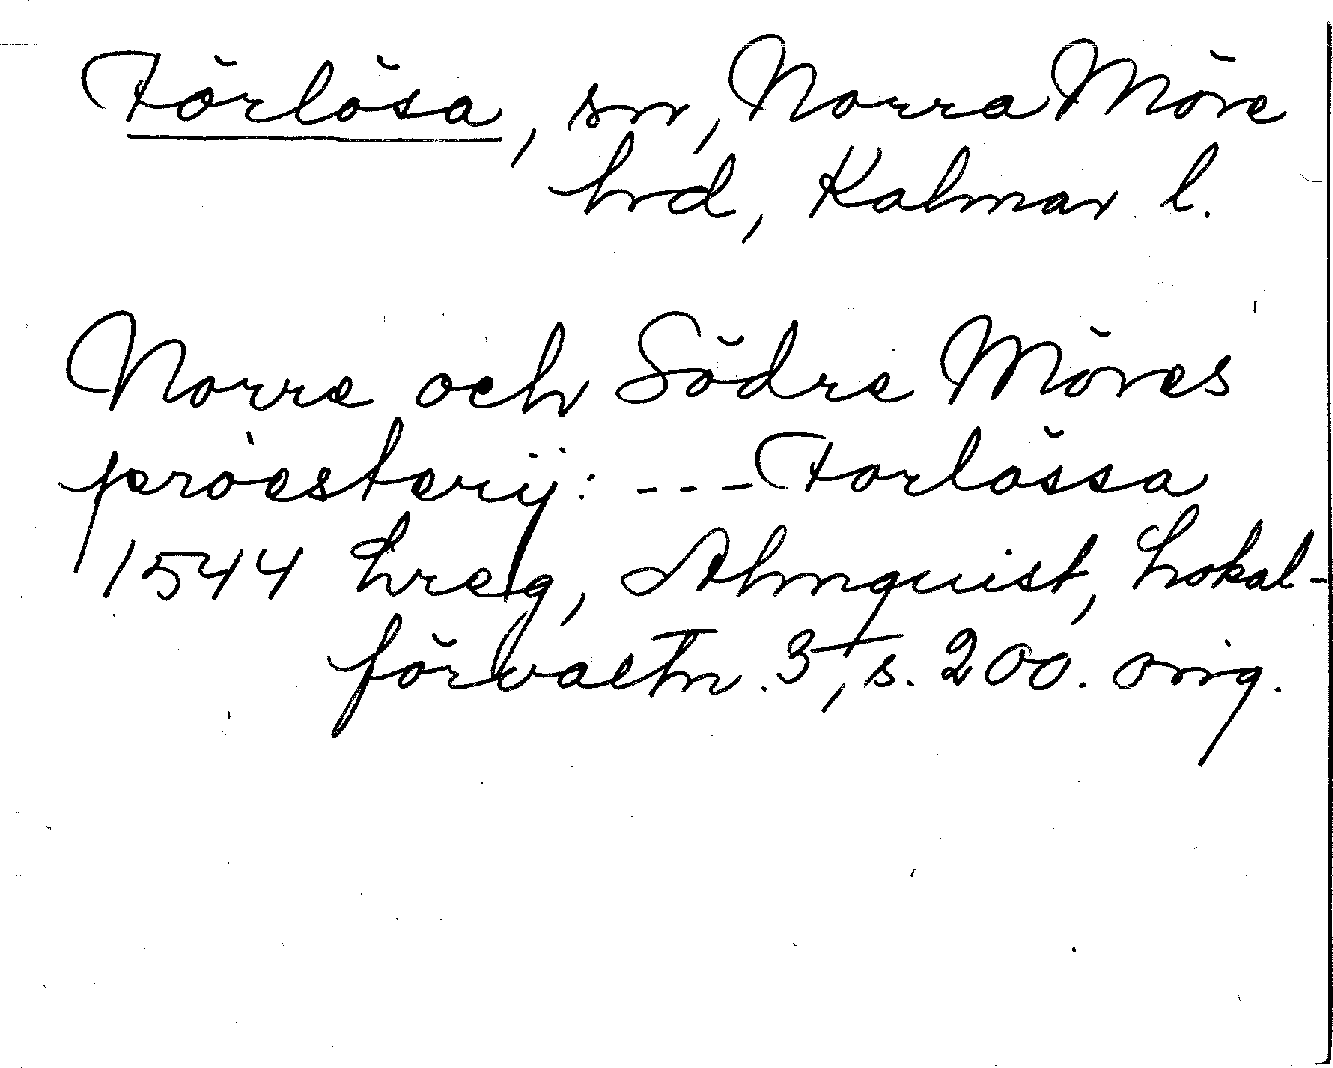 Förlösa, sn, Norra Möre
hrd, Kalmar l.
Norre och Södre Möres
proesterij: --- Forlössa
1544 hreg, Almquist, Lokal-
förvaltn. 3, s. 200. orig.